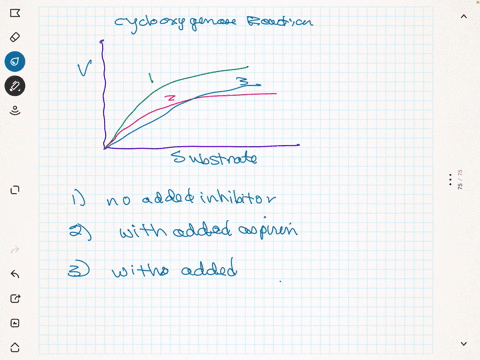 Cyclooxygenase Reaction
V
1
2
3
Substrate
1) no added inhibitor
2) with added aspirin
3) with added
75 / 75